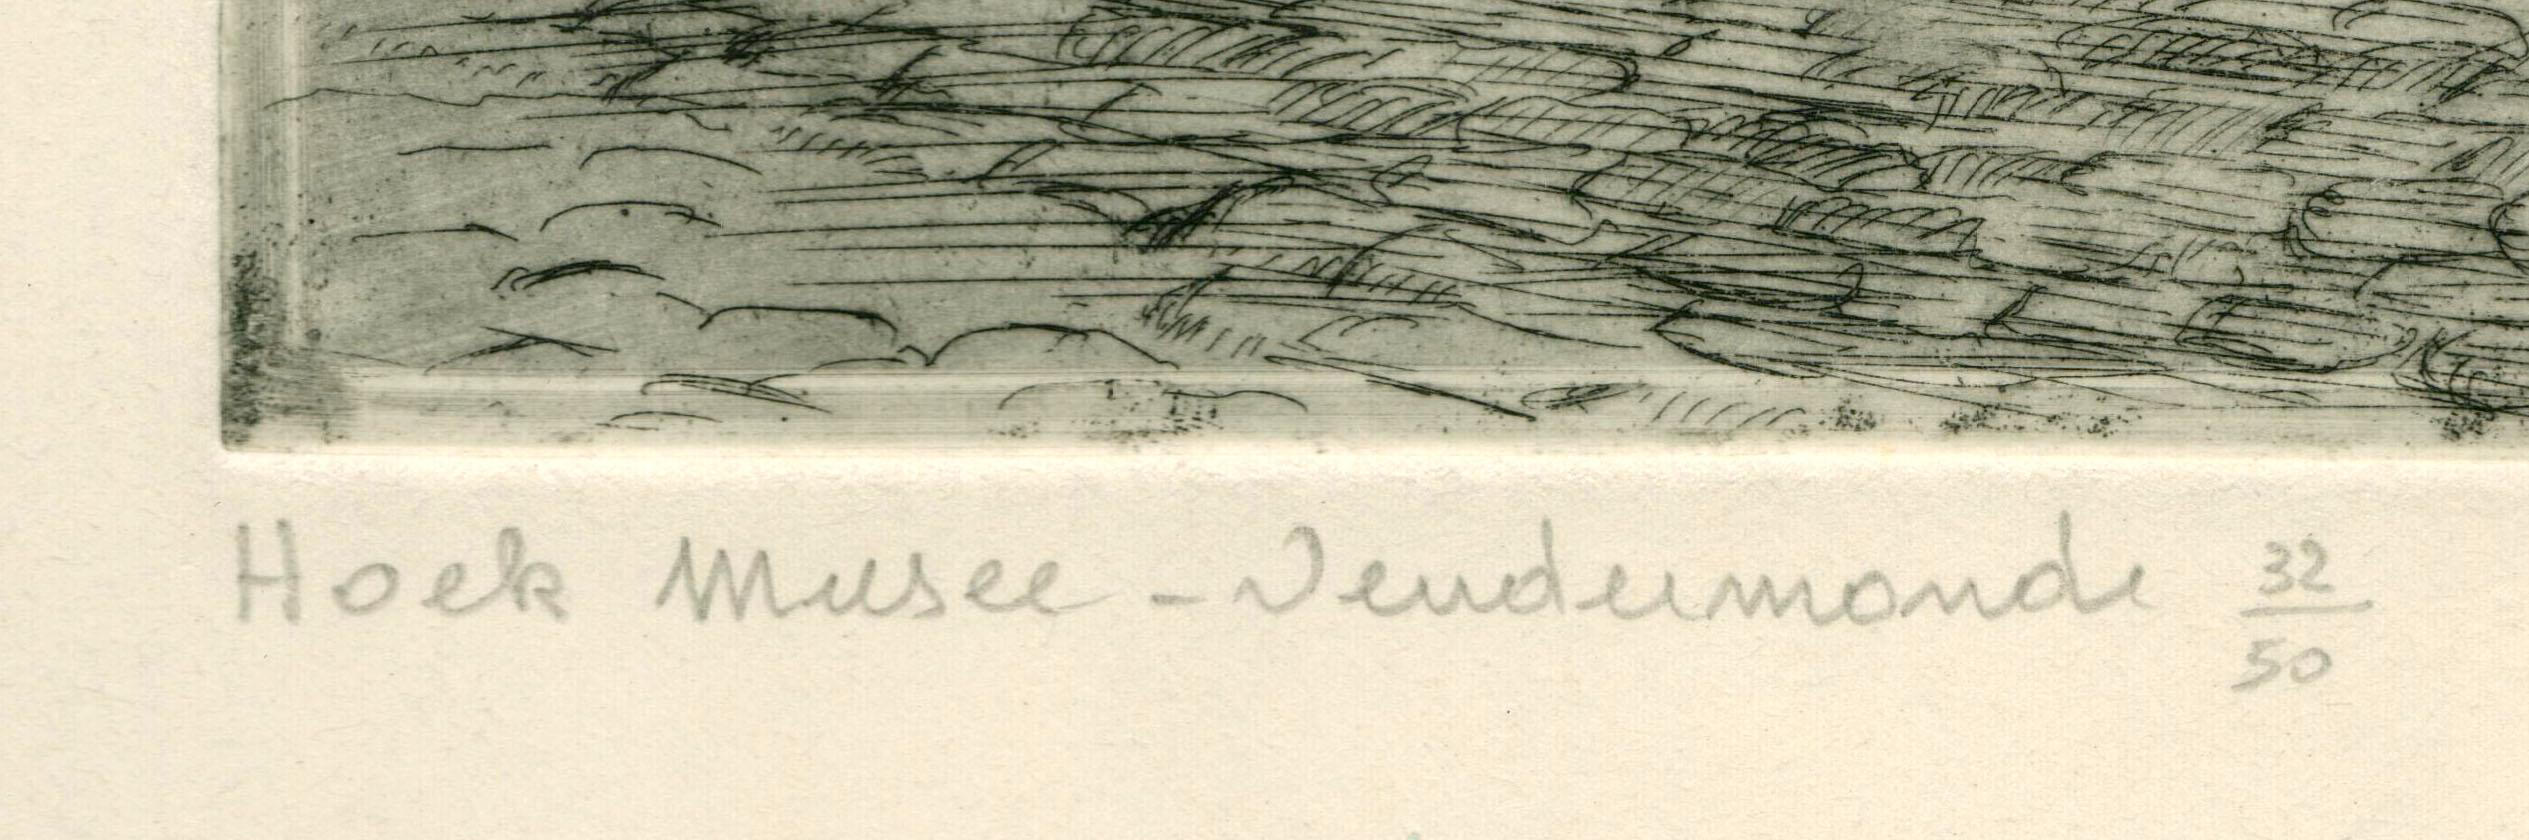 Hoek Musee - Dendermonde 32/50